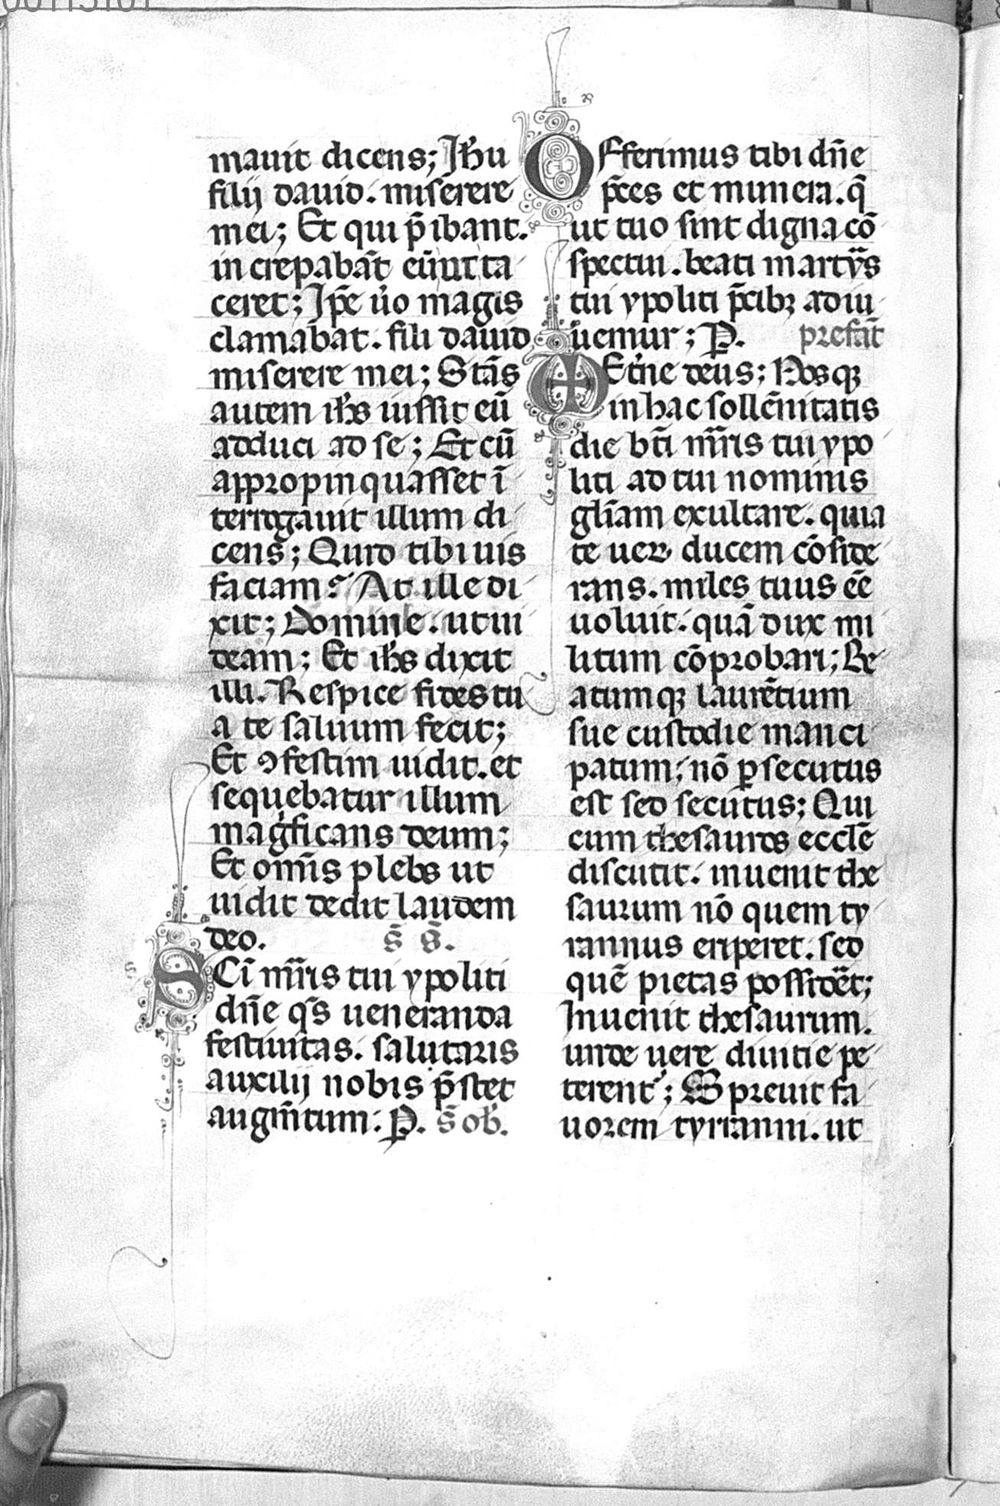 mauit dicens; Jhu
filij dauid. miserere
mei; Et qui p̄ibant.
increpabāt eū ut ta
ceret; Jpē ūo magis
clamabat. fili dauid
miserere mei; Stās
autem ihs iussit eū
adduci ad se; Et cū
appropinquasset ī
terrogauit illum di
cens; Quid tibi uis
faciam? At ille di
xit; Domine. ut ui
deam; Et ihs dixit
illi. Respice fides tu
a te saluum fecit;
Et ꝯfestim uidit. et
sequebatur illum
magficans deum;
Et omīs plebs ut
uidit dedit laudem
deo. s̄ s̄.
SCī mr̄is tui ypoliti
dn̄e qs̄ ueneranda
festiuitas. salutaris
auxilij nobis p̄stet
augm̄tum: P. s̄ ob̄.
Offerimus tibi dn̄e
p̄ces et munera. q̄
ut tuo sint digna cō
spectui. beati martȳs
tui ypoliti p̄cibꝫ adiu
uemur; P. prefat̄
Et̄ne deus; Nos qꝫ
in hac sollēnitatis
die bt̄i mr̄is tui ypo
liti ad tui nominis
gl̄iam exultare. quia
te uerꝝ ducem cōside
rans. miles tuus eē
uoluit. quā dux mi
litum cōprobari; Be
atumqꝫ laurētium
sue custodie manci
patum; nō ꝑsecutus
est sed secutus; Qui
cum thesauros ecclē
discutit. inuenit the
saurum nō quem ty
rannus eriperet. sed
quē pietas possidēt;
Inuenit thesaurum.
unde uere diuitie pe
terent; Spreuit fa
uorem tyrranni. ut